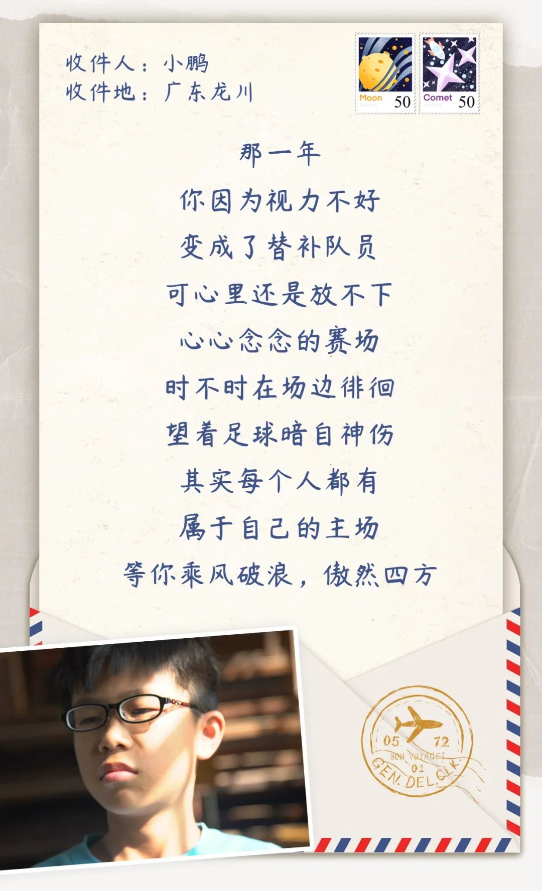 收件人：小鹏
收件地：广东龙川
Moon 50
Comet 50
那一年
你因为视力不好
变成了替补队员
可心里还是放不下
心心念念的赛场
时不时在场边徘徊
望着足球暗自神伤
其实每个人都有
属于自己的主场
等你乘风破浪，傲然四方
05 72
BON VOYAGE!
01
GEN. DEL. C.I.K.